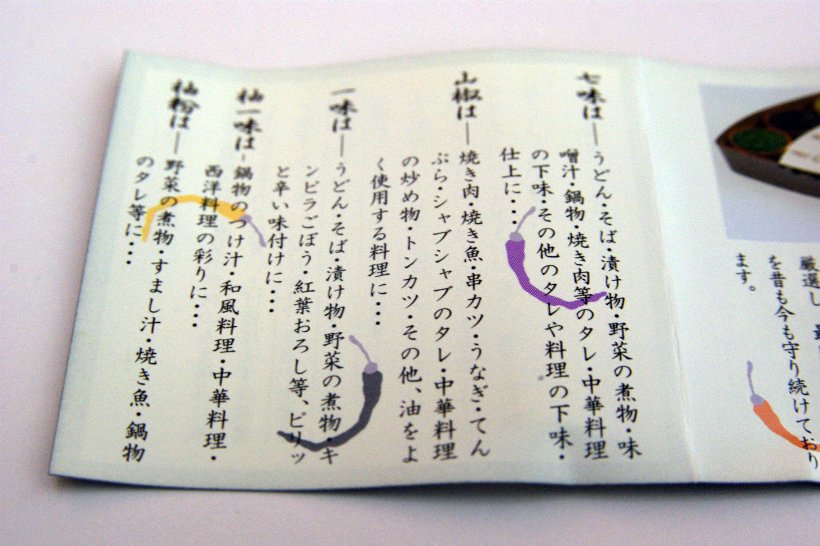 厳選し
を昔も今も守り続けており
ます。
七味は―うどん・そば・漬け物・野菜の煮物・味
噌汁・鍋物・焼き肉等のタレ・中華料理
の下味・その他のタレや料理の下味・
仕上に・・・
山椒は―焼き肉・焼き魚・串カツ・うなぎ・てん
ぷら・シャブシャブのタレ・中華料理
の炒め物・トンカツ・その他、油をよ
く使用する料理に・・・
一味は―うどん・そば・漬け物・野菜の煮物・キ
ンピラごぼう・紅葉おろし等、ピリッ
と辛い味付けに・・・
柚一味は-鍋物のつけ汁・和風料理・中華料理・
西洋料理の彩りに・・・
柚粉は―野菜の煮物・すまし汁・焼き魚・鍋物
のタレ等に・・・